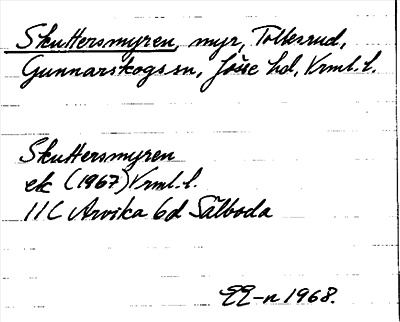 Skuttersmyren, myr, Tolkesrud,
Gunnarskogs sn, Jösse hd, Vrml. l.
Skuttersmyren
ek (1967) Vrml. l.
11C Arvika 6d Sälboda
EE-n 1968.